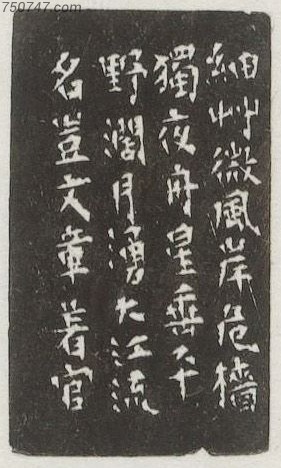 750747.com
細艸微風岸危檣
獨夜舟星垂平
野濶月湧大江流
名豈文章著官